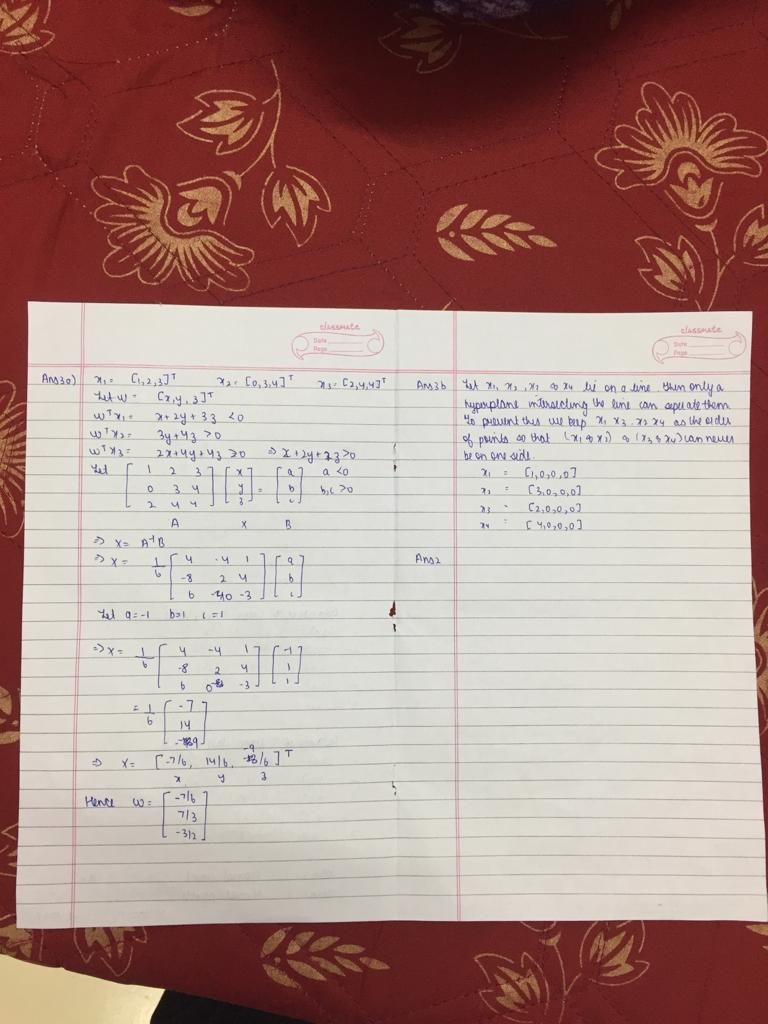 classmate
Date
Page
Ans3a) x1 = [1,2,3]ᵀ x2 = [0,3,4]ᵀ x3 = [2,4,4]ᵀ
Let w = [x,y,z]ᵀ
wᵀx1 = x+2y+3z <0
wᵀx2 = 3y+4z >0
wᵀx3 = 2x+4y+4z >0 ⇒ x+2y+2z>0
Let [1 2 3] [x] = [a] a<0
[0 3 4] [y] [b] b,c >0
[2 4 4] [z] [c]
A X B
⇒ X = A⁻¹B
⇒ X = 1/6 [4 -4 1] [a]
[-8 2 4] [b]
[6 0 -3] [c]
Let a=-1 b=1 c=1
⇒ X = 1/6 [4 -4 1] [-1]
[-8 2 4] [1]
[6 0 -3] [1]
= 1/6 [-7]
[14]
[-9]
⇒ X = [-7/6, 14/6, -9/6]ᵀ
x y z
Hence w = [-7/6]
[7/3]
[-3/2]
classmate
Date
Page
Ans3b Let x1, x2, x3 & x4 lie on a line then only a
hyperplane intersecting the line can seperate them
To prevent this we keep x1 x3 x2 x4 as the order
of points so that (x1 & x2) & (x3 & x4) can never
be on one side.
x1 = [1,0,0,0]
x2 = [3,0,0,0]
x3 = [2,0,0,0]
x4 = [4,0,0,0]
Ans2